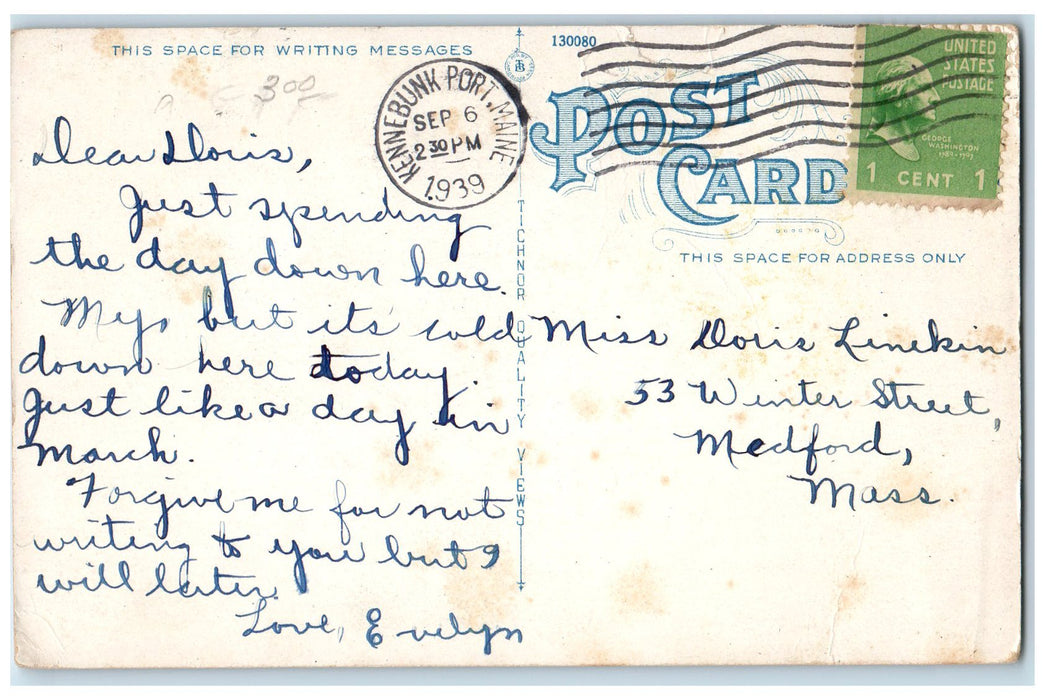 THIS SPACE FOR WRITING MESSAGES
3 00
Dear Doris,
Just spending
the day down here.
My, but it's cold
down here today.
Just like a day in
March.
Forgive me for not
writing to you but I
will later.
Love, Evelyn
KENNEBUNK PORT, MAINE
SEP 6
2 30 PM
1939
TICHNOR QUALITY VIEWS
130080
POST
CARD
UNITED
STATES
POSTAGE
GEORGE
WASHINGTON
1789-1797
1 CENT 1
THIS SPACE FOR ADDRESS ONLY
Miss Doris Linekin
53 Winter Street,
Medford,
Mass.